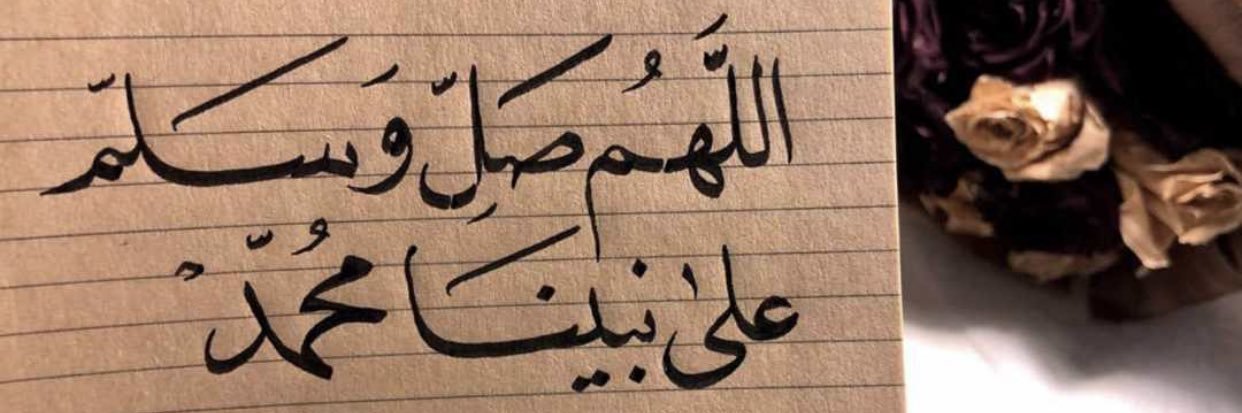 اللَّهُم صَلِّ وَسَلّم
على نبينَا محُمّدْ